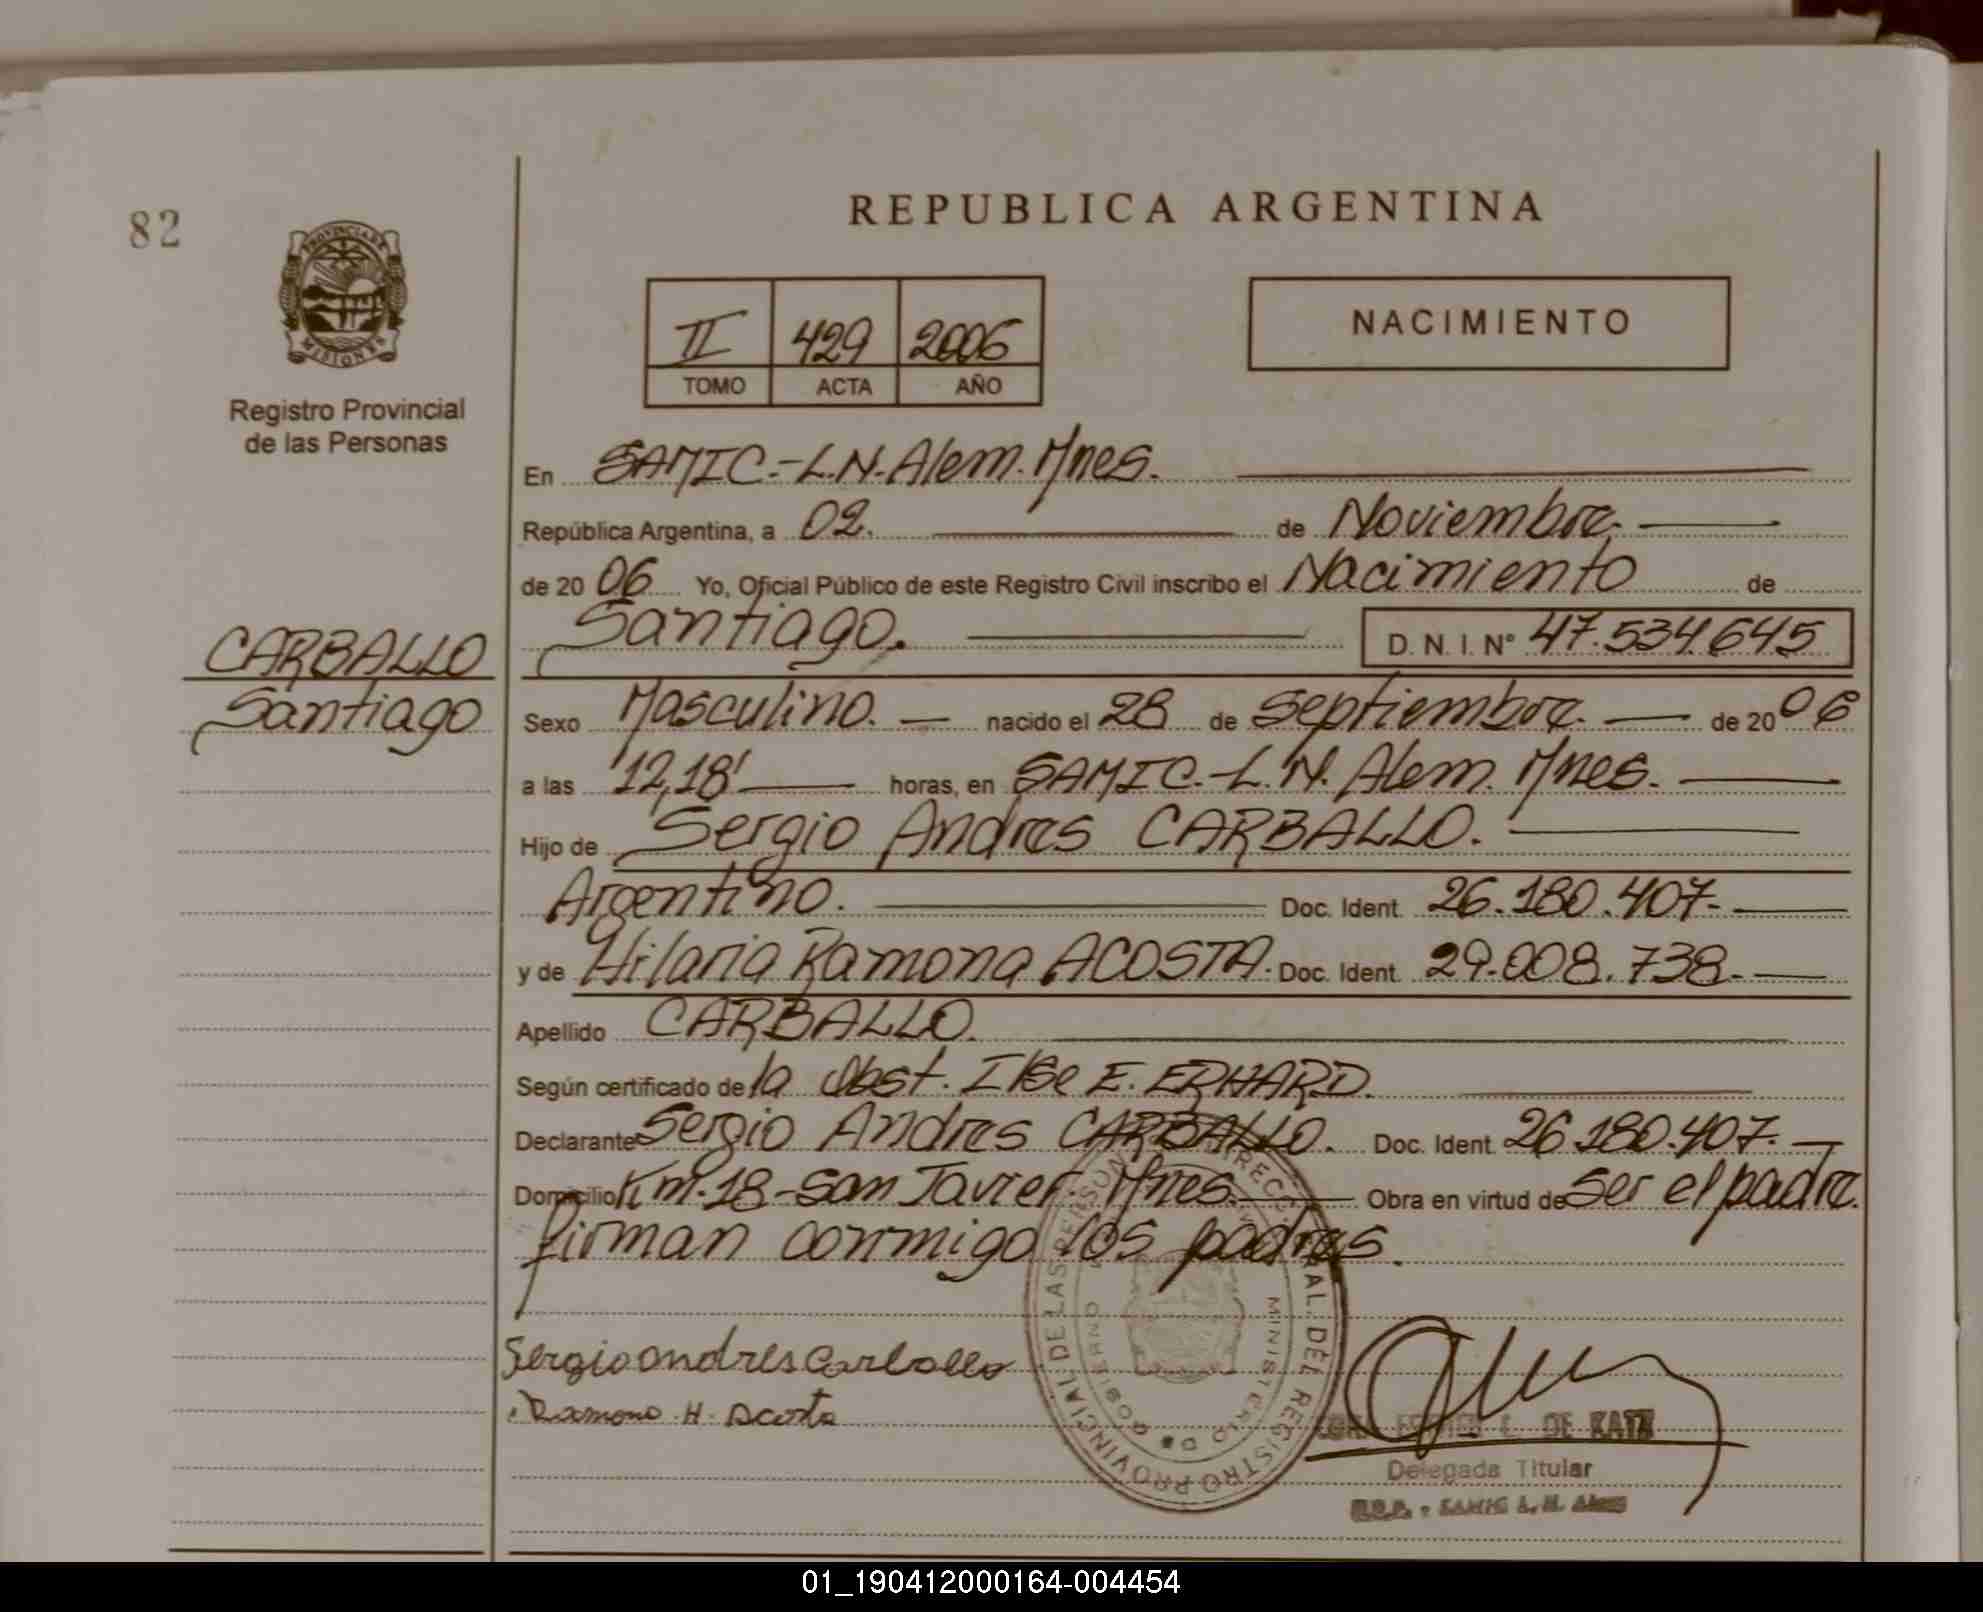 82
REPUBLICA ARGENTINA
PROVINCIA DE
MISIONES
Registro Provincial
de las Personas
II 429 2006
TOMO ACTA AÑO
NACIMIENTO
En SAMIC.-L.N.Alem.Mnes.
República Argentina, a 02. de Noviembre.
de 20 06 Yo, Oficial Público de este Registro Civil inscribo el Nacimiento de
Santiago. D. N. I. Nº 47.534.645
CARBALLO
Santiago
Sexo Masculino. nacido el 28 de Septiembre. de 20 06
a las 12,18' horas, en SAMIC.-L.N. Alem. Mnes.
Hijo de Sergio Andres CARBALLO.
Argentino. Doc. Ident. 26.180.407.
y de Hilaria Ramona ACOSTA. Doc. Ident. 29.008.738.
Apellido CARBALLO.
Según certificado de la Obst. Ilse E. ERHARD.
Declarante Sergio Andres CARBALLO. Doc. Ident. 26.180.407.
Domicilio Km.18-San Javier. Mnes. Obra en virtud de Ser el padre.
firman conmigo los padres.
Sergio andres Carballo
Ramona H. Acosta
PROVINCIAL DE LAS PERSONAS
DEL REGISTRO
GOBIERNO
MINISTERIO D
DE KATZ
Delegada Titular
R.P.P. - SAMIC L. N. Alem
01_190412000164-004454